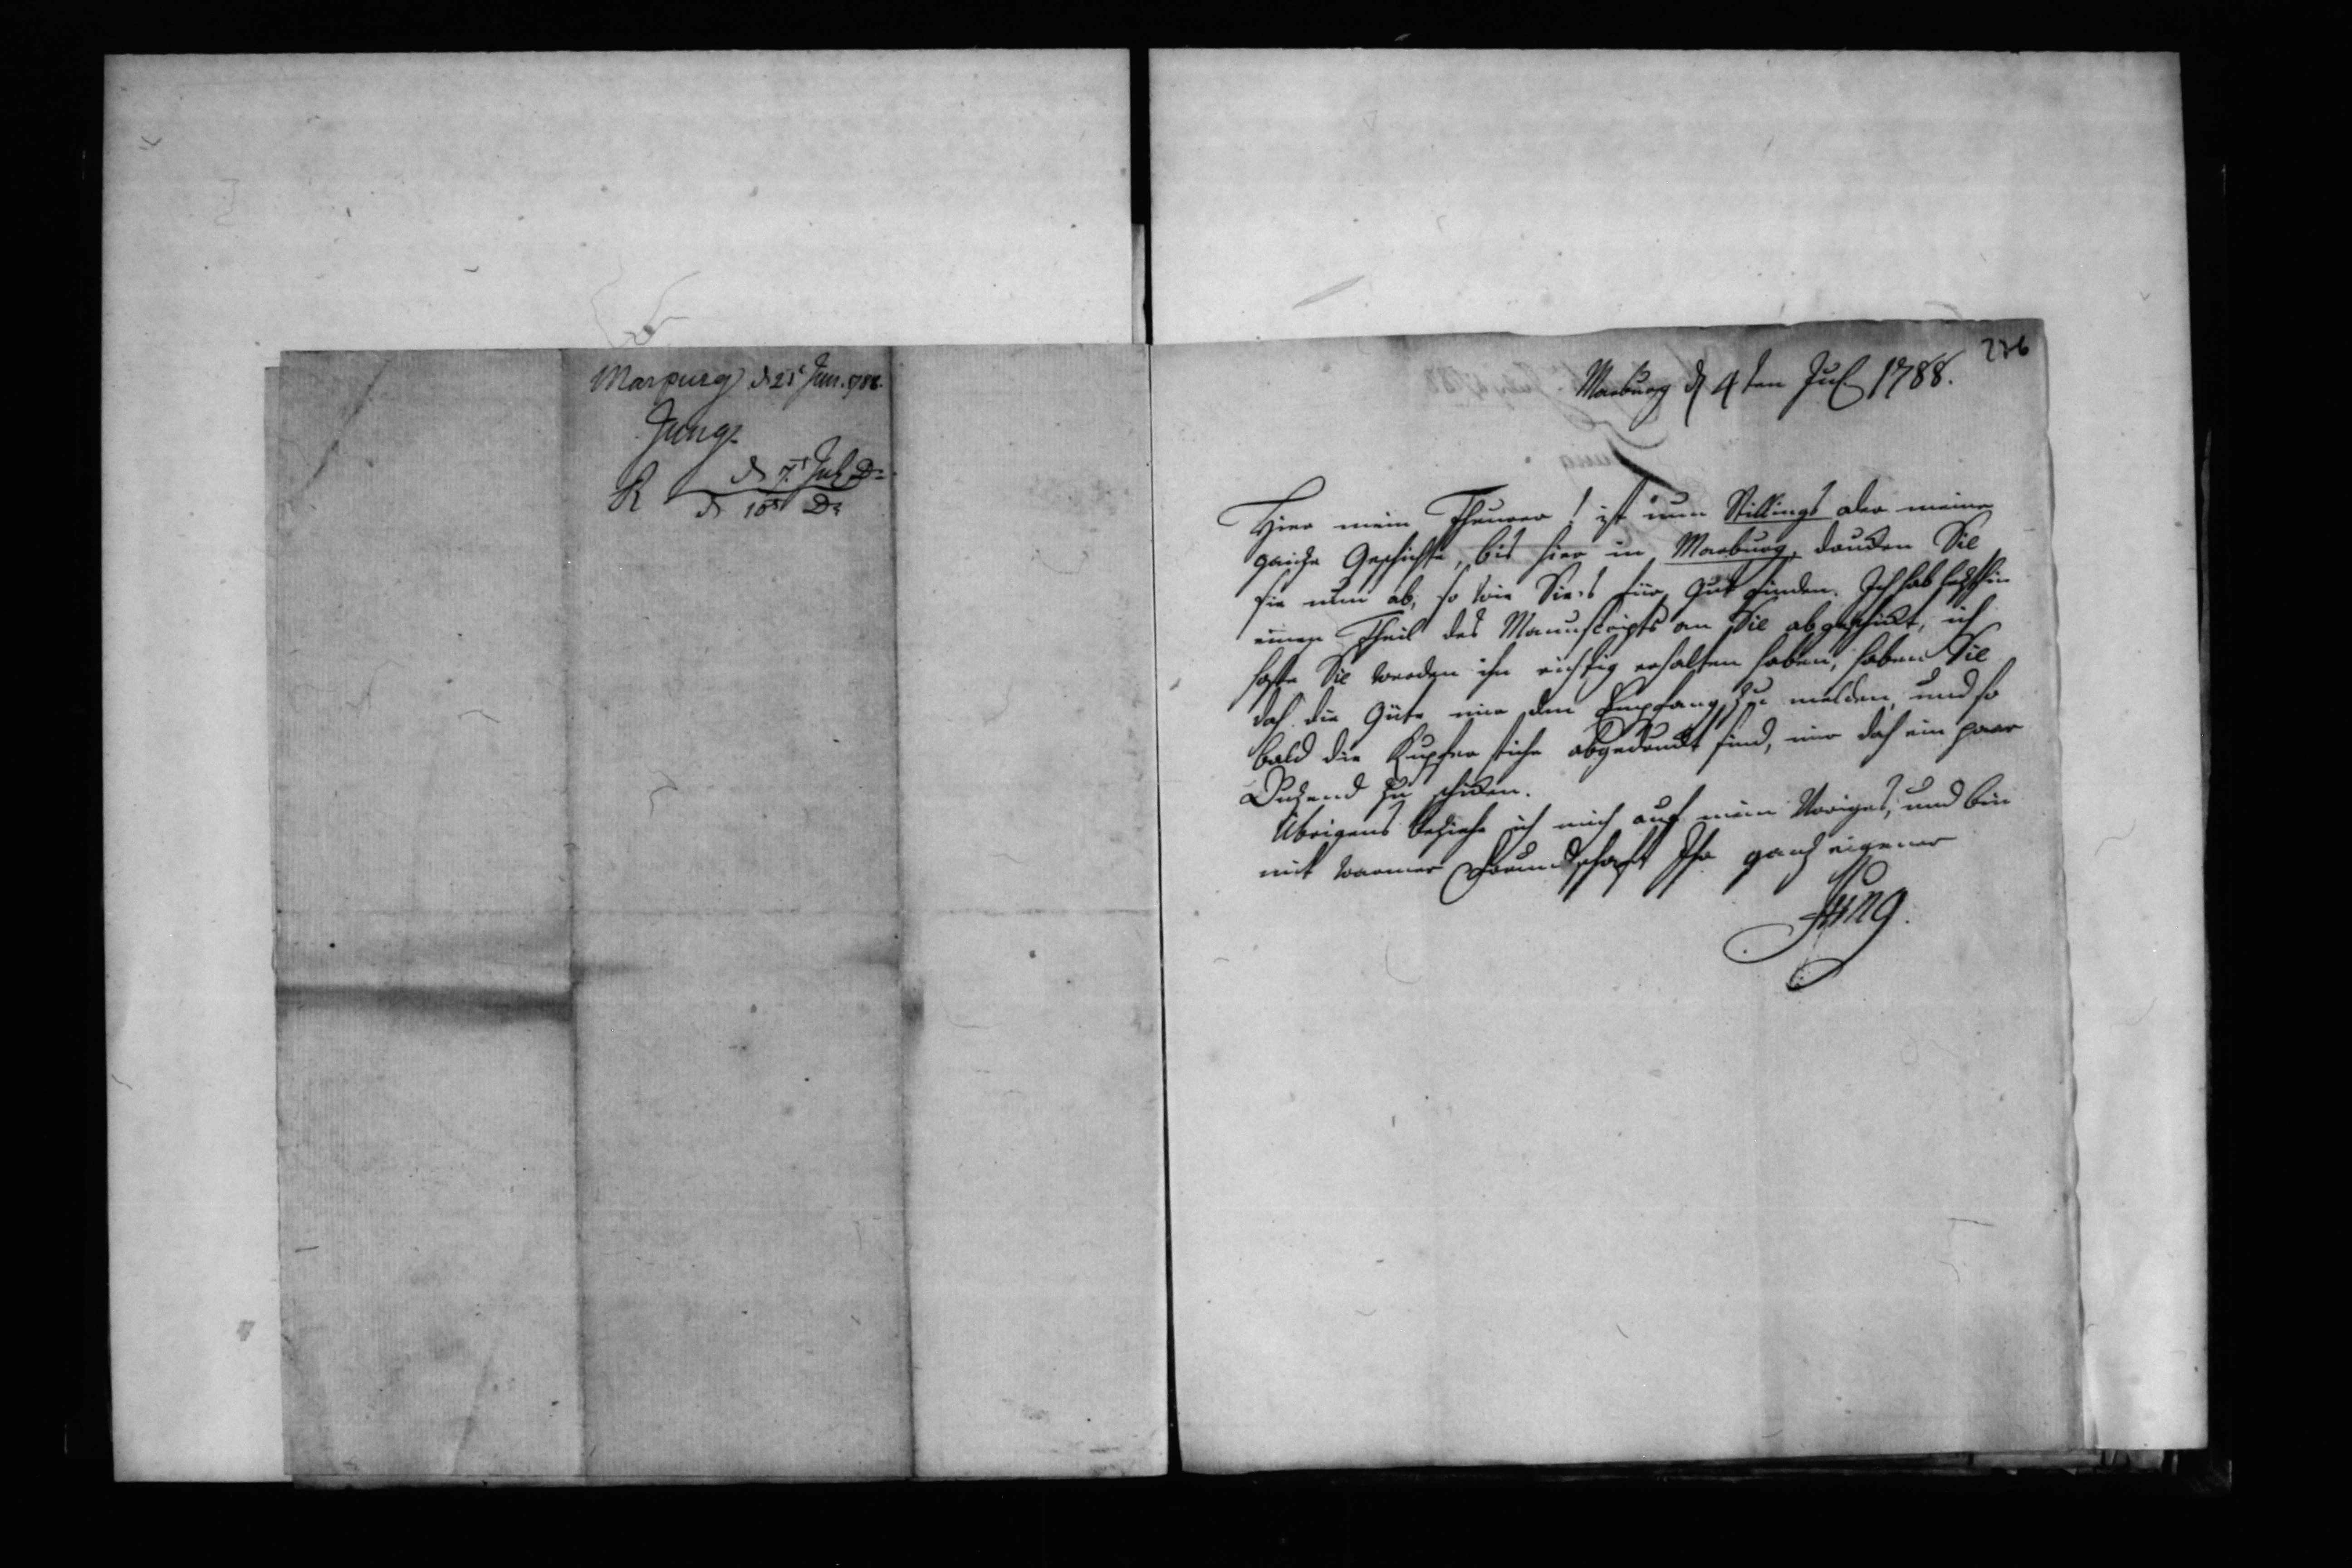 Marpurg d 25t Jun. 1788.
Jung
R d 7t Jul D=
d 10t D=
236
Marburg d 4ten Jul 1788.
Hier mein Theurer! ist nun Stillings oder meine
ganze Geschichte, bis hier in Marburg, drucken Sie
sie nun ab, so wie Sie's für gut finden. Ich hab letzthin
einen Theil des Manuscripts an Sie abgeschickt, ich
hoffe Sie werden ihn richtig erhalten haben, haben Sie
doch die Güte mir den Empfang zu melden, und so
bald die Kupferstiche abgedruckt sind, mir doch ein paar
Duzend zu schicken.
Übrigens beziehe ich mich auf mein Voriges, und bin
mit warmer Freundschaft Ihr ganz eigener
Jung.